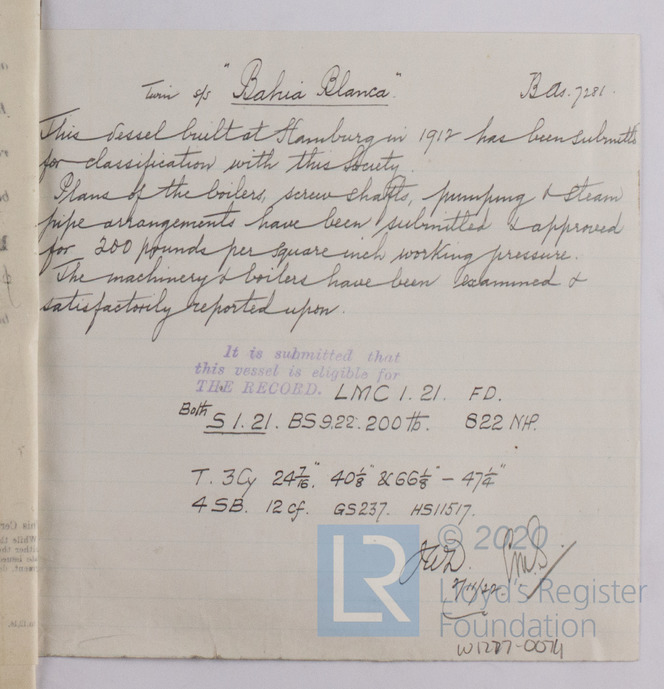 Twin s/s "Bahia Blanca". B As. 7281.
This vessel built at Hamburg in 1912 has been submitted
for classification with this Society.
Plans of the boilers, screw shafts, pumping & steam
pipe arrangements have been submitted & approved
for 200 pounds per square inch working pressure.
The machinery & boilers have been examined &
satisfactorily reported upon.
It is submitted that
this vessel is eligible for
THE RECORD. LMC 1.21. FD.
Both S 1.21. BS 9.22. 200 lb. 822 NHP.
T. 3Cy 24 7/16". 40 1/8" & 66 1/8" - 47 1/4"
4 SB. 12 cf. GS 237. HS 11517.
© 2020
JWD.
LR
Lloyd's Register
Foundation
W1277-0074